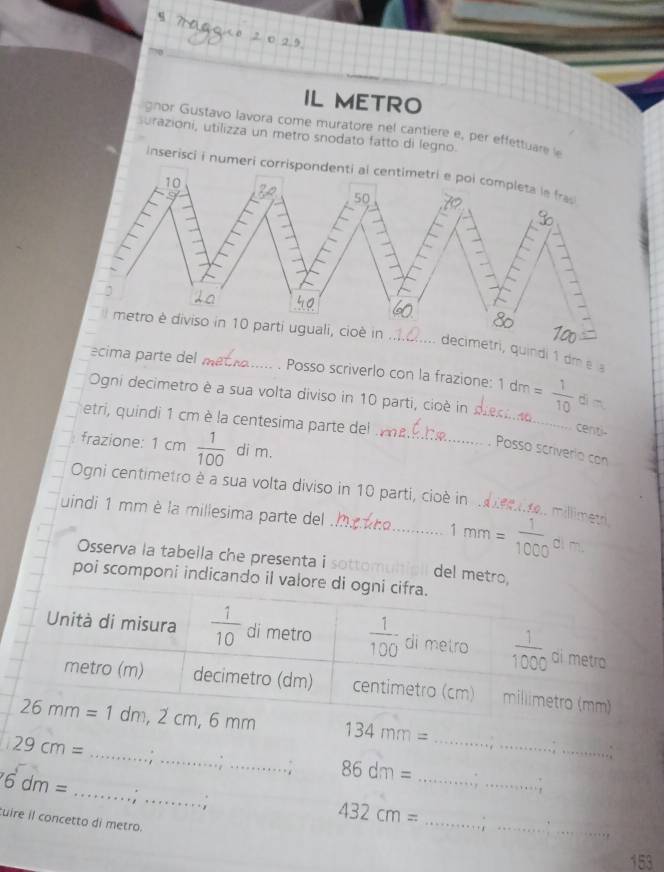 8 maggio 2025
IL METRO
gnor Gustavo lavora come muratore nel cantiere e, per effettuare le
surazioni, utilizza un metro snodato fatto di legno.
inserisci i numeri corrispondenti ai centimetri e poi completa le frasi
10 30 50 70 90
0 20 40 60 80 100
metro è diviso in 10 parti uguali, cioè in ..10.... decimetri, quindi 1 dm è a
ecima parte del metro...... . Posso scriverlo con la frazione: 1 dm = 1/10 di m.
Ogni decimetro è a sua volta diviso in 10 parti, cioè in ........ centi-
etri, quindi 1 cm è la centesima parte del .metro........ . Posso scriverlo con
frazione: 1 cm 1/100 di m.
Ogni centimetro è a sua volta diviso in 10 parti, cioè in ........ millimetri,
uindi 1 mm è la millesima parte del ..metro.......... 1 mm = 1/1000 di m.
Osserva la tabella che presenta i sottomultipli del metro,
poi scomponi indicando il valore di ogni cifra.
Unità di misura 1/10 di metro 1/100 di metro 1/1000 di metro
metro (m) decimetro (dm) centimetro (cm) millimetro (mm)
26 mm = 1 dm, 2 cm, 6 mm 134 mm = ..........; ..........; ..........;
29 cm = ..........; ..........; ..........; 86 dm = ..........; ..........;
6 dm = ..........; ..........; 432 cm = ..........; ..........; ..........,
tuire il concetto di metro.
153